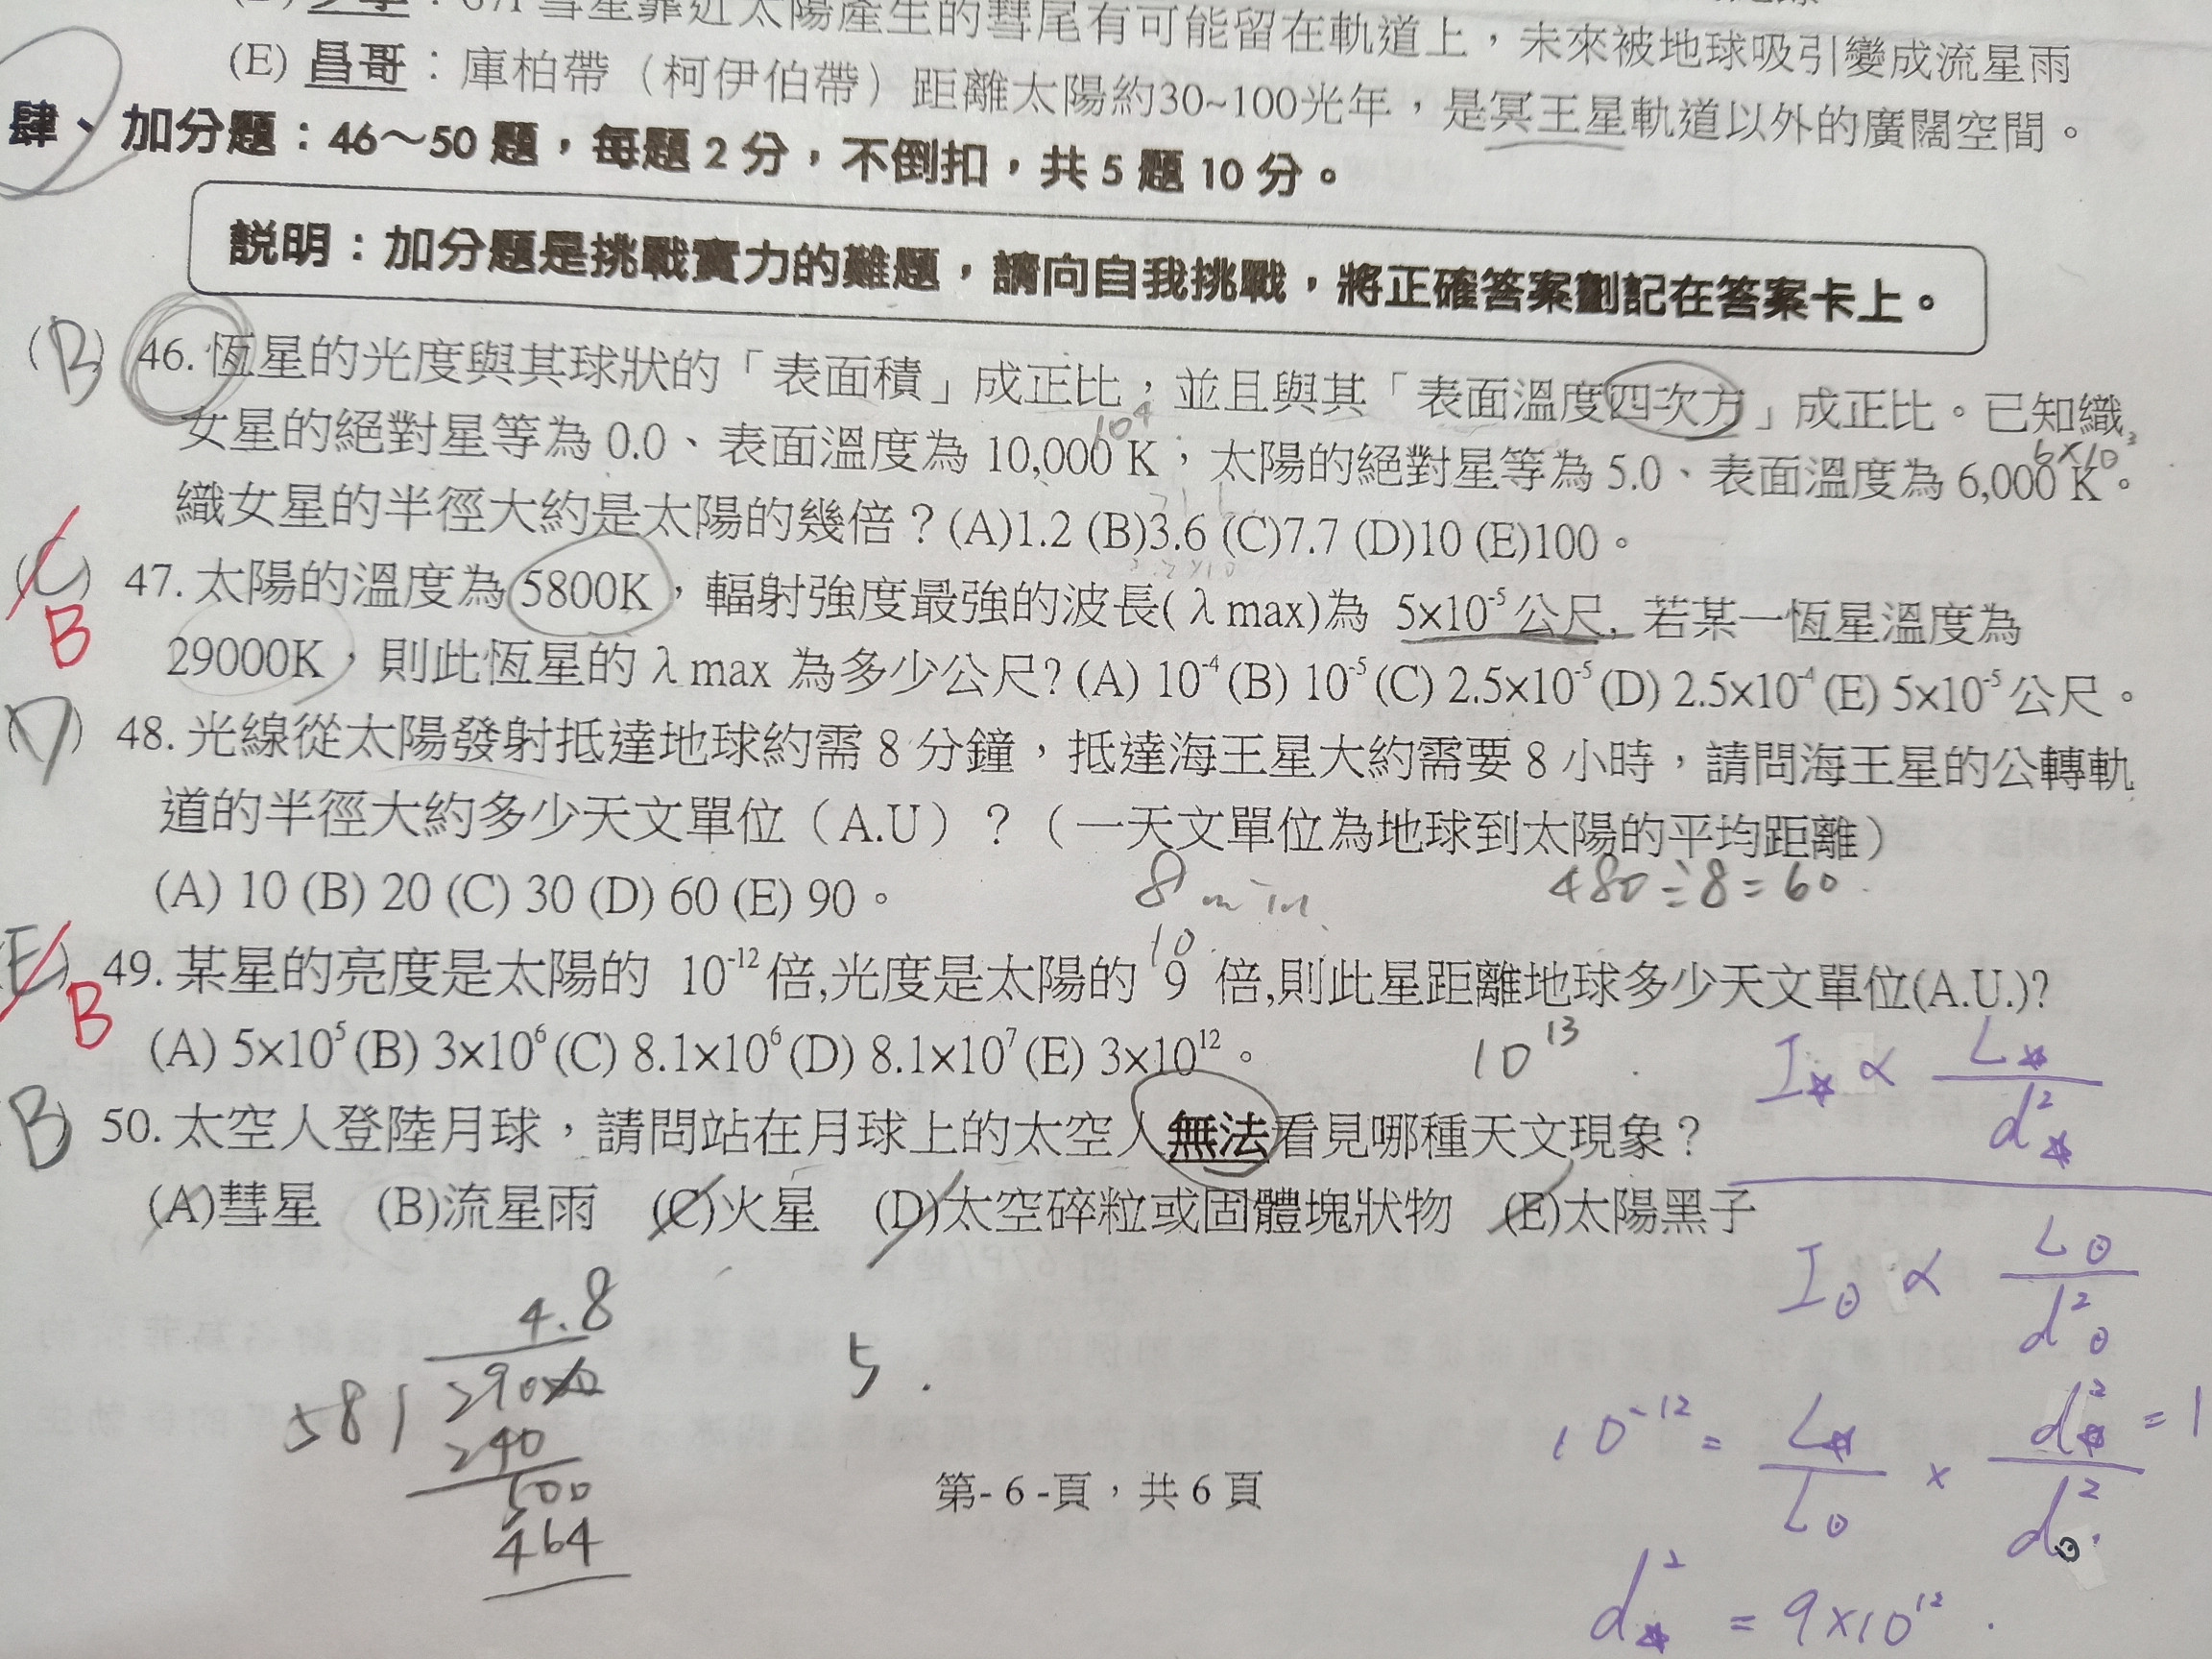 ：67P彗星靠近太陽產生的彗尾有可能留在軌道上，未來被地球吸引變成流星雨
(E) 昌哥：庫柏帶（柯伊伯帶）距離太陽約30~100光年，是冥王星軌道以外的廣闊空間。
肆、加分題：46～50 題，每題 2 分，不倒扣，共 5 題 10 分。
說明：加分題是挑戰實力的難題，請向自我挑戰，將正確答案劃記在答案卡上。
(B) 46. 恆星的光度與其球狀的「表面積」成正比，並且與其「表面溫度四次方」成正比。已知織
10⁴
女星的絕對星等為 0.0、表面溫度為 10,000 K；太陽的絕對星等為 5.0、表面溫度為 6,000 K。
6×10³
織女星的半徑大約是太陽的幾倍？(A)1.2 (B)3.6 (C)7.7 (D)10 (E)100。
(C) 47. 太陽的溫度為 5800K，輻射強度最強的波長( λ max)為 5×10⁻⁵ 公尺, 若某一恆星溫度為
B
29000K，則此恆星的 λ max 為多少公尺? (A) 10⁻⁴ (B) 10⁻⁵ (C) 2.5×10⁻⁵ (D) 2.5×10⁻⁴ (E) 5×10⁻⁵ 公尺。
(D) 48. 光線從太陽發射抵達地球約需 8 分鐘，抵達海王星大約需要 8 小時，請問海王星的公轉軌
道的半徑大約多少天文單位（A.U）？（一天文單位為地球到太陽的平均距離）
(A) 10 (B) 20 (C) 30 (D) 60 (E) 90。
8 min
480÷8=60
(E) 49. 某星的亮度是太陽的 10⁻¹² 倍,光度是太陽的 9 倍,則此星距離地球多少天文單位(A.U.)?
B
10
(A) 5×10⁵ (B) 3×10⁶ (C) 8.1×10⁶ (D) 8.1×10⁷ (E) 3×10¹²。
10¹³
(B) 50. 太空人登陸月球，請問站在月球上的太空人無法看見哪種天文現象？
(A)彗星 (B)流星雨 (C)火星 (D)太空碎粒或固體塊狀物 (E)太陽黑子
4.8
58
290
240
500
464
5
I☆ ∝ L☆/d²☆
I⊙ ∝ L⊙/d²⊙
10⁻¹² = L☆/L⊙ × d²☆/d²⊙ = 1
d²☆ = 9×10¹²
第- 6 -頁，共 6 頁